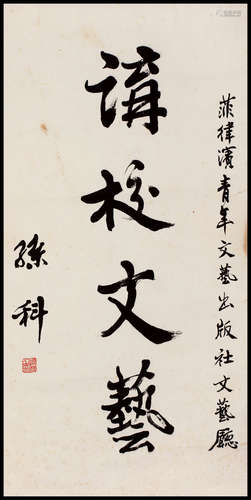 菲律濱青年文藝出版社文藝廳
講校文藝
孫科